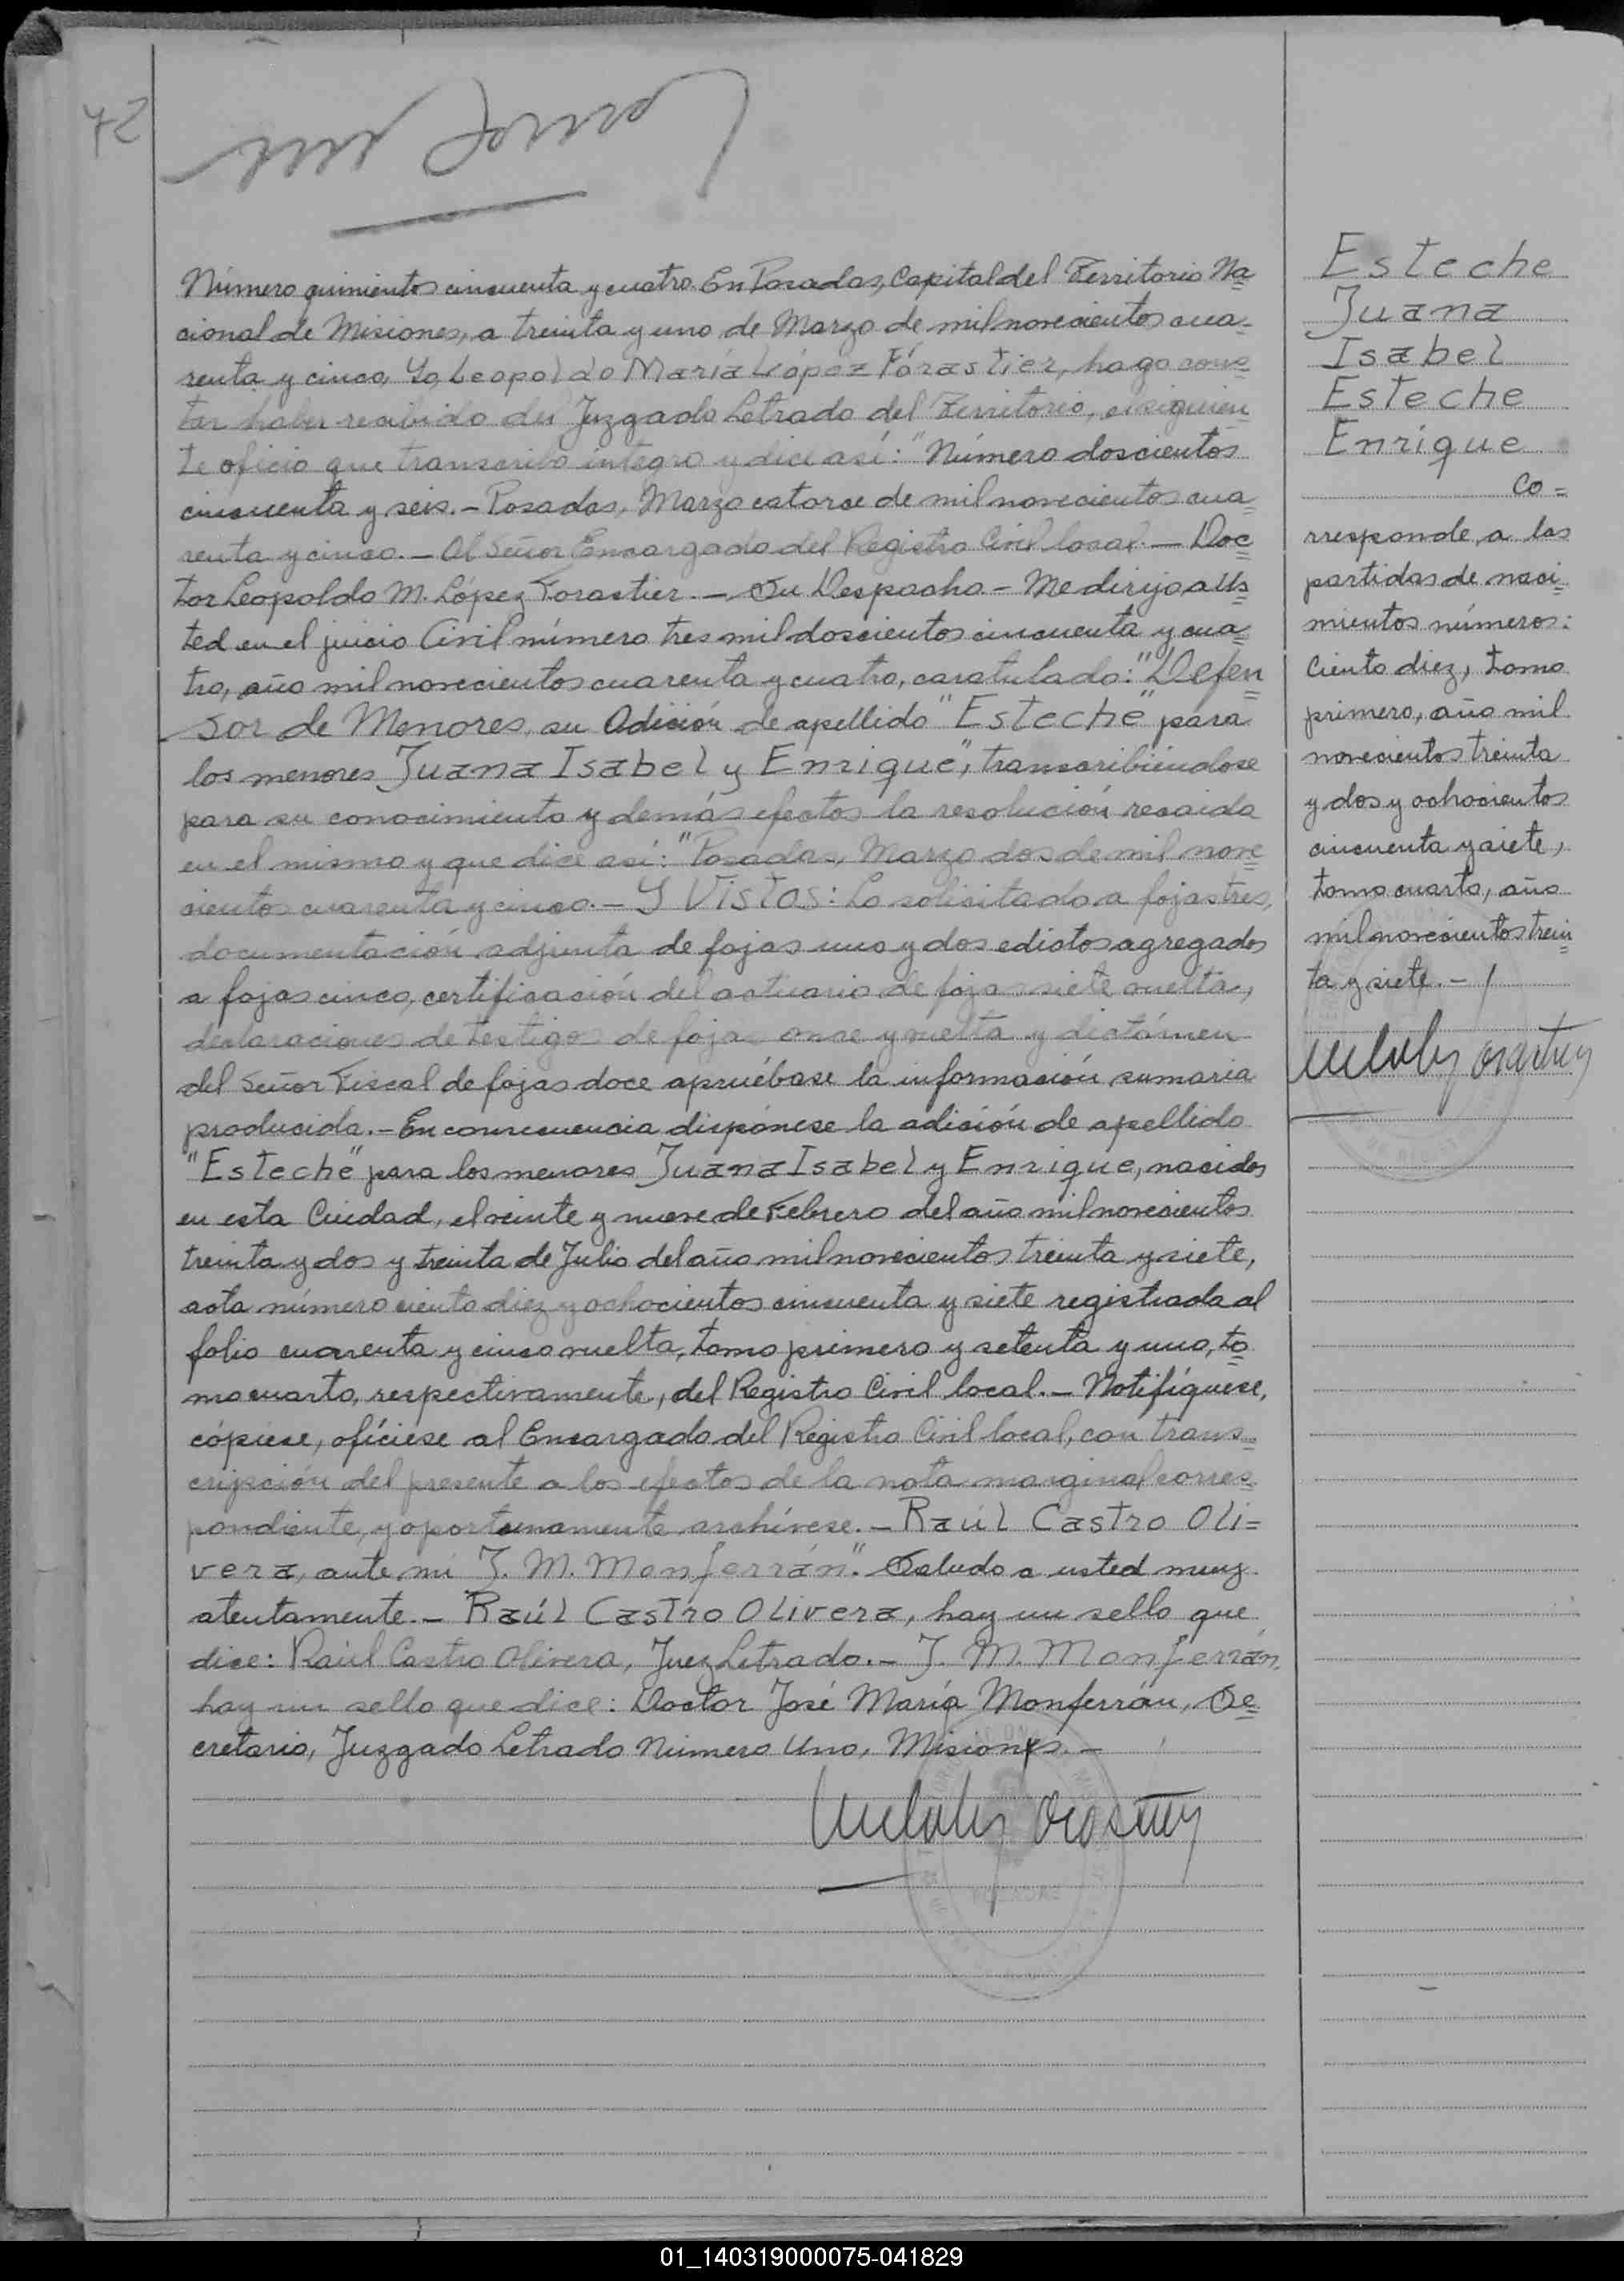 42
Número quinientos cincuenta y cuatro. En Posadas, Capital del Territorio Na=
cional de Misiones, a treinta y uno de Marzo de mil novecientos cua=
renta y cinco, Yo, Leopoldo María López Forastier, hago cons=
tar haber recibido del Juzgado Letrado del Territorio, el siguien=
te oficio que transcribo íntegro y dice así: "Número doscientos
cincuenta y seis.- Posadas, Marzo catorce de mil novecientos cua=
renta y cinco.- Al Señor Encargado del Registro Civil local.- Doc=
tor Leopoldo M. López Forastier.- Su Despacho- Me dirijo a Us=
ted en el juicio Civil número tres mil doscientos cincuenta y cua=
tro, año mil novecientos cuarenta y cuatro, caratulado: "Defen=
sor de Menores, su Adición de apellido "Esteche" para
los menores Juana Isabel y Enrique", transcribiéndose
para su conocimiento y demás efectos la resolución recaida
en el mismo y que dice así: "Posadas, Marzo dos de mil nove=
cientos cuarenta y cinco.- Y Vistos: Lo solicitado a fojas tres,
documentación adjunta de fojas uno y dos edictos agregados
a fojas cinco, certificación del actuario de fojas siete vuelta,
declaraciones de testigos de fojas once y vuelta y dictámen
del Señor Fiscal de fojas doce apruébase la información sumaria
producida.- En consecuencia dispónese la adición de apellido
"Esteche" para los menores Juana Isabel y Enrique, nacidos
en esta Ciudad, el veinte y nueve de Febrero del año mil novecientos
treinta y dos y treinta de Julio del año mil novecientos treinta y siete,
acta número ciento diez y ochocientos cincuenta y siete registrada al
folio cuarenta y cinco vuelta, tomo primero y setenta y uno, to=
mo cuarto, respectivamente, del Registro Civil local.- Notifíquese,
cópiese, ofíciese al Encargado del Registro Civil local, con trans=
cripción del presente a los efectos de la nota marginal corres=
pondiente, y oportunamente archívese.- Raúl Castro Oli=
vera, ante mí J. M. Monferrán". Saludo a usted muy
atentamente.- Raúl Castro Olivera, hay un sello que
dice: Raúl Castro Olivera, Juez Letrado.- J. M. Monferrán,
hay un sello que dice: Doctor José María Monferrán, Se=
cretario, Juzgado Letrado Número Uno, Misiones.-
Esteche
Juana
Isabel
Esteche
Enrique
Co=
rresponde a las
partidas de naci=
mientos números:
Ciento diez, tomo
primero, año mil
novecientos treinta
y dos y ochocientos
cincuenta y siete,
tomo cuarto, año
mil novecientos trein=
ta y siete.-
01_140319000075-041829